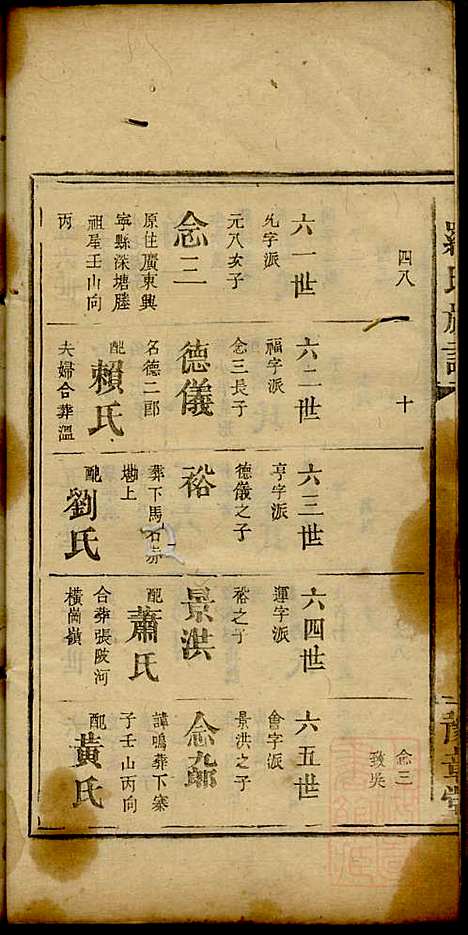 羅氏族譜
四八
十
念三
致吳
豫章堂
六一世
允字派
元八亥子
念三
原住廣東興
寧縣深塘塍
祖屋壬山向
丙
六二世
福字派
念三長子
德儀
名德二郎
配賴氏
夫婦合葬溫
六三世
亨字派
德儀之子
裕
葬下馬石赤
塘上
配劉氏
六四世
運字派
裕之子
景洪
配蕭氏
合葬張陂河
橫崗嶺
六五世
會字派
景洪之子
念九郎
諱鳴葬下寨
子壬山丙向
配黃氏